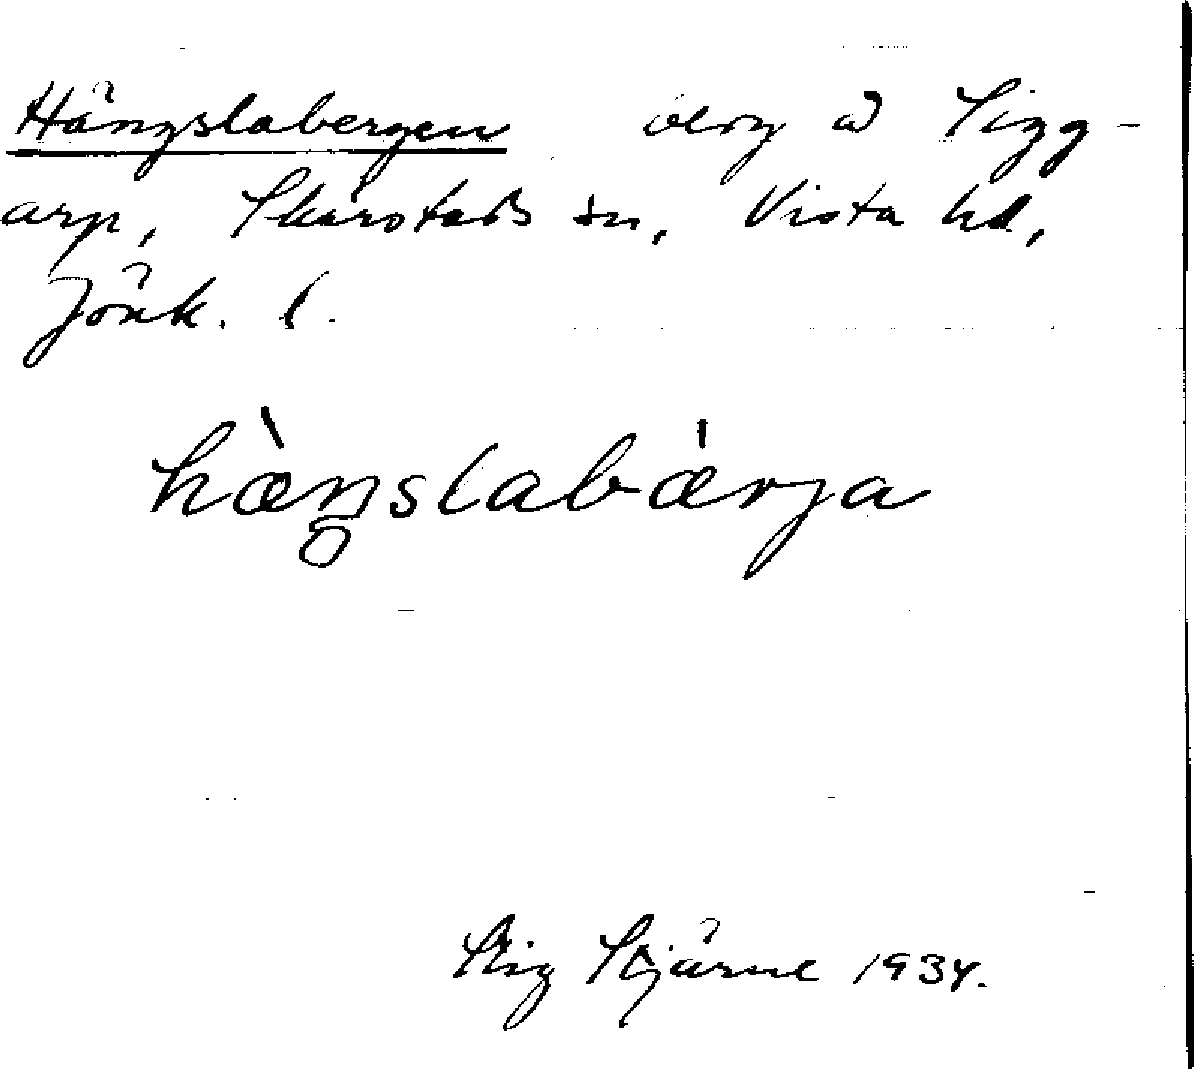 Hängslabergen berg å Sigg-
arp, Skärstads sn, Vista hd,
Jönk. l.
hæ̀ŋslabárja
Stig Stjärne 1934.